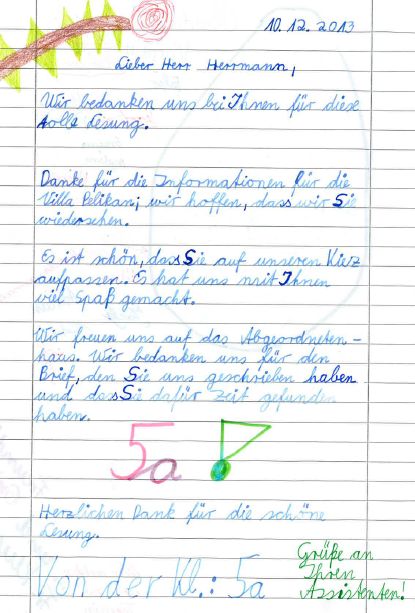 10.12.2013
Lieber Herr Herrmann,
Wir bedanken uns bei Ihnen für diese
tolle Lesung.
Danke für die Informationen für die
Villa Pelikan; wir hoffen, dass wir Sie
wiedersehen.
Es ist schön, dass Sie auf unseren Kiez
aufpassen. Es hat uns mit Ihnen
viel Spaß gemacht.
Wir freuen uns auf das Abgeordneten-
haus. Wir bedanken uns für den
Brief, den Sie uns geschrieben haben
und dass Sie dafür Zeit gefunden
haben.
5a
Herzlichen Dank für die schöne
Lesung.
Von der Kl.: 5a
Grüße an
Ihren
Assistenten!